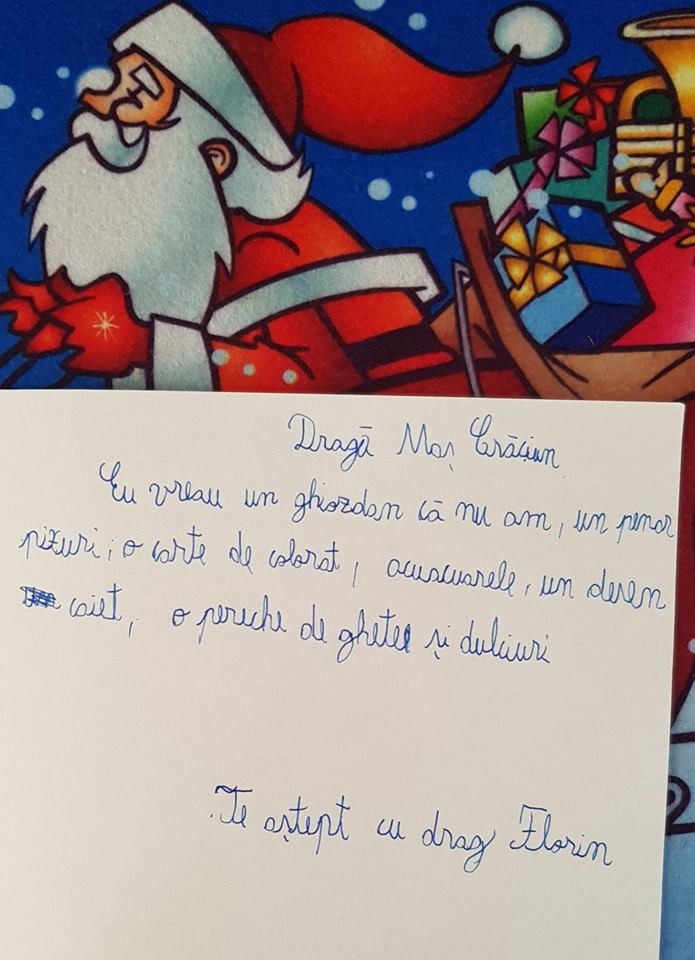 Dragă Moș Crăciun
Eu vreau un ghiozdan că nu am, un penar
pixuri, o carte de colorat, acuacuarele, un desen
caiet, o pereche de ghete și dulciuri
Te aștept cu drag Florin
2